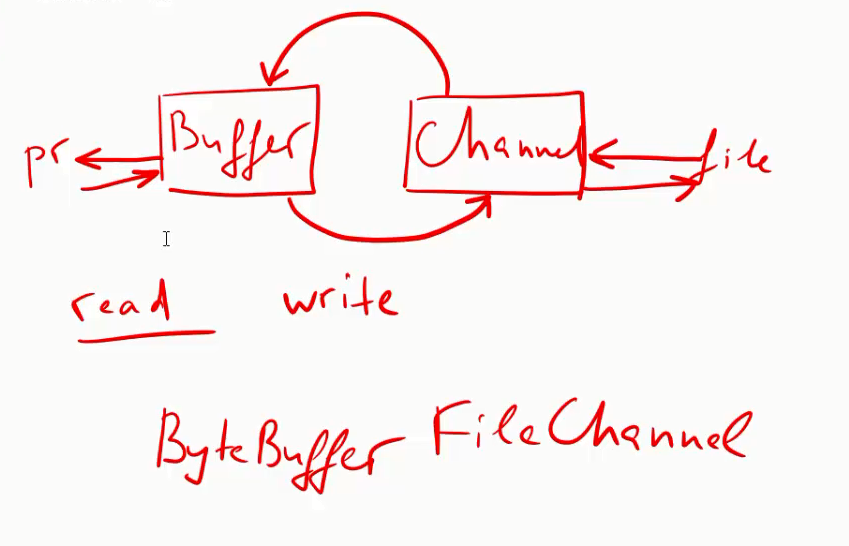 pr Buffer Channel file
read write
ByteBuffer FileChannel